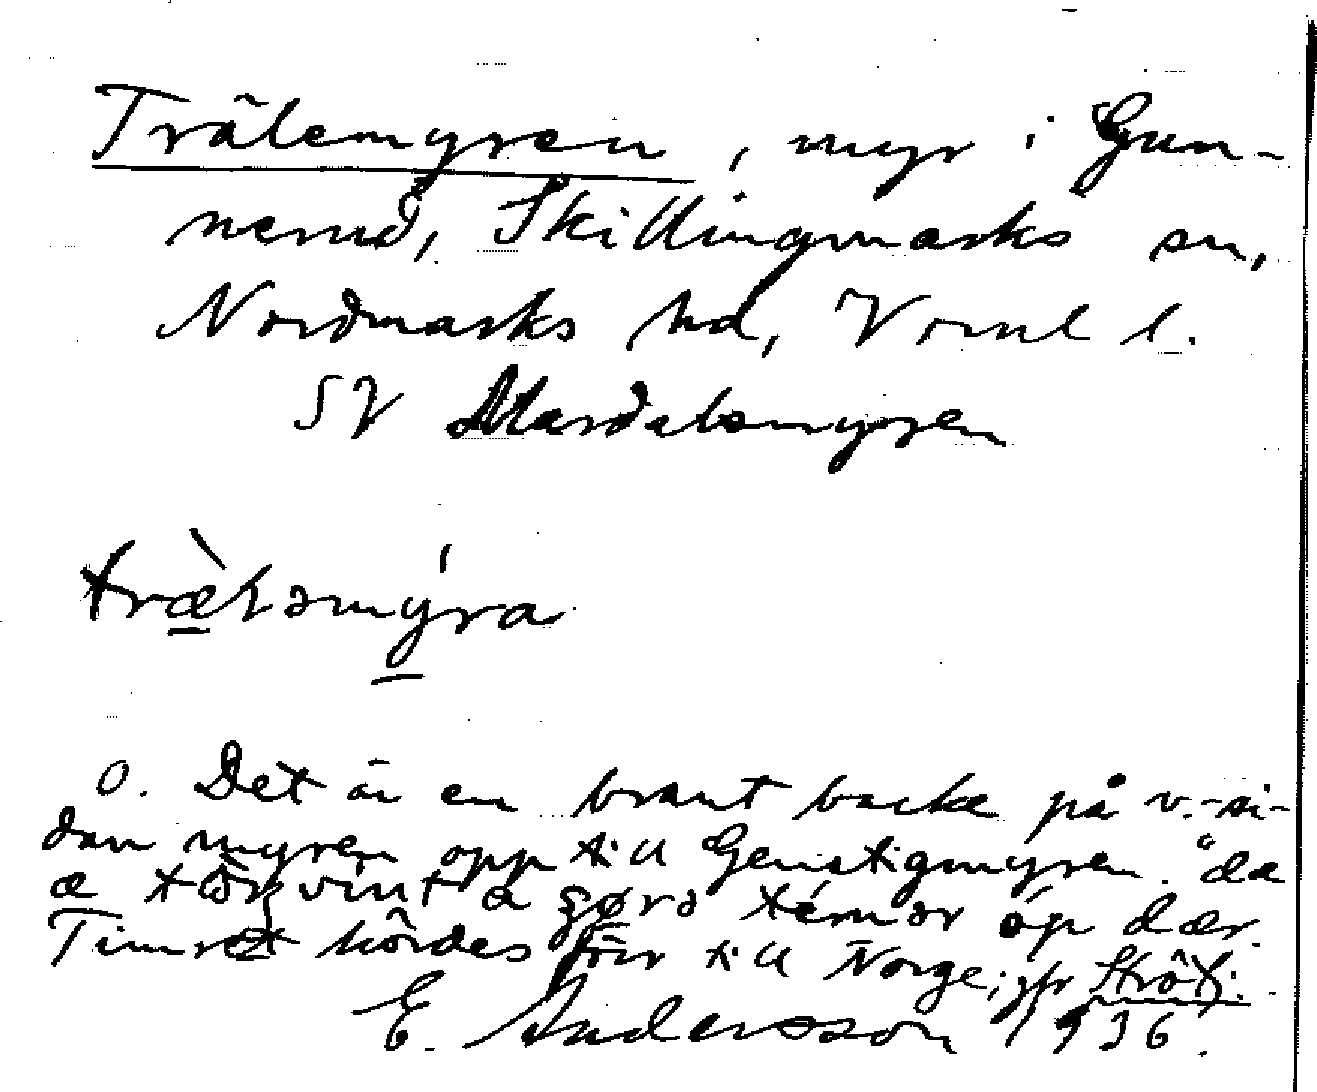 Trälemyren, myr i Gun-
nerud, Skillingmarks sn,
Nordmarks hd, Vrml l.
SV Mardalsmyren
træ̀ləmýra
O. Det är en brant backe på v.-si-
dan myren opp till Genstigmyren. "da
æ a çørə témər óp dær.
Timret kördes förr till Norge; jfr
E. Andersson 1936.